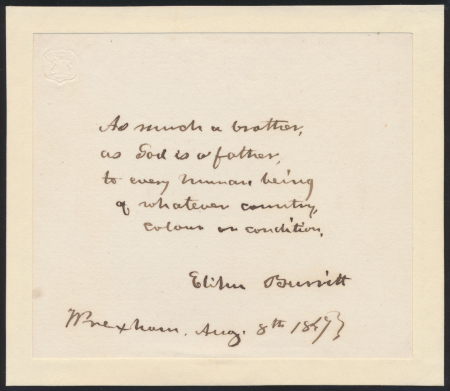 As much a brother,
as God is a father,
to every human being
of whatever country,
colour or condition.
Elihu Burritt
Wrexham. Aug. 8th